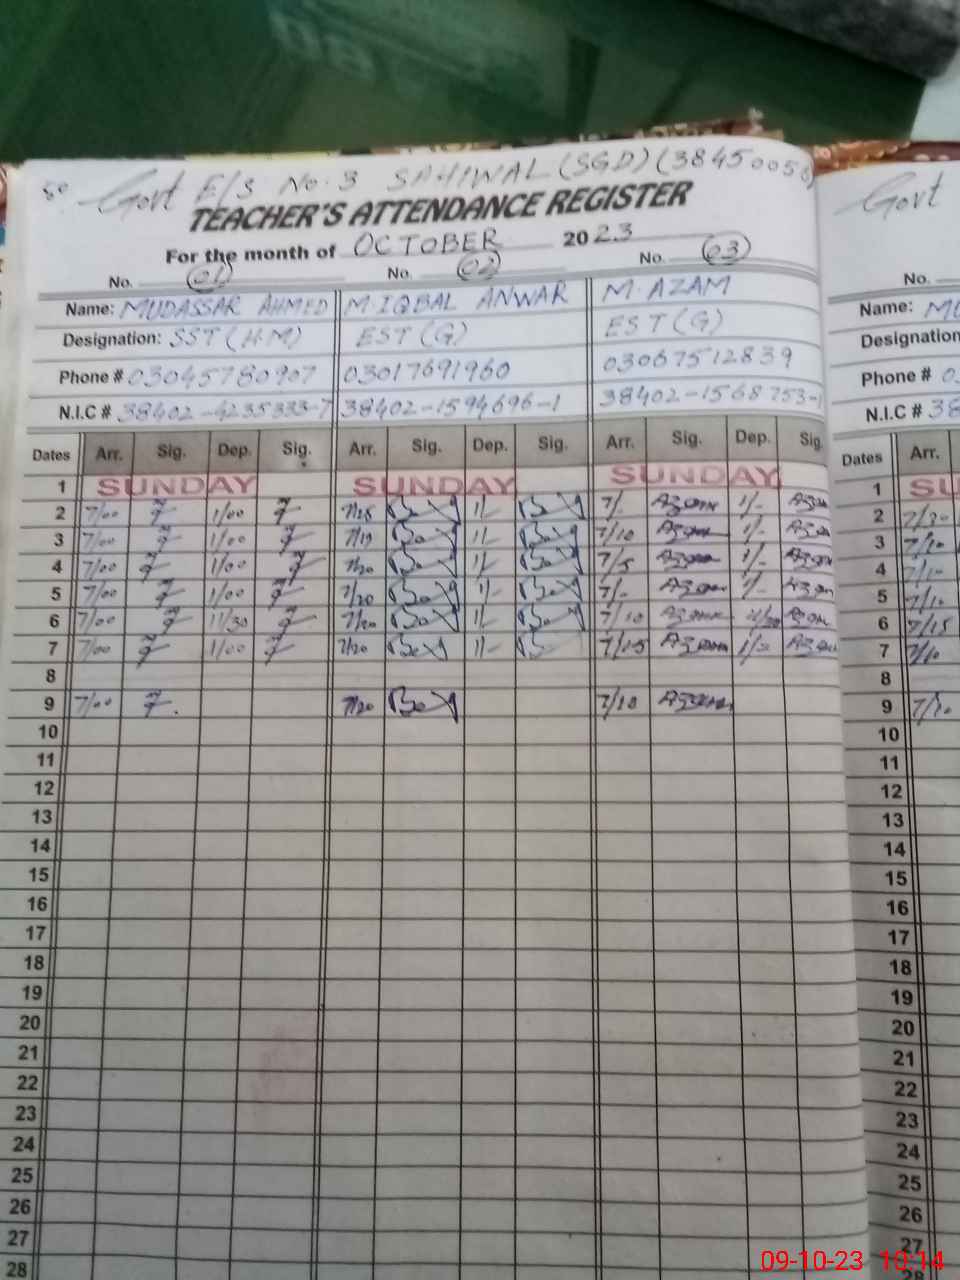 Govt E/S No. 3 SAHIWAL (SGD) (3845005
TEACHER'S ATTENDANCE REGISTER
For the month of OCTOBER 2023
No. 01 No. 02 No. 03
Name: MUDASSAR AHMED M. IQBAL ANWAR M. AZAM
Designation: SST (H.M) EST (G) EST (G)
Phone # 03045780907 03017691960 03067512839
N.I.C # 38402-4235333-7 38402-1594696-1 38402-1568753-1
Dates Arr. Sig. Dep. Sig. Arr. Sig. Dep. Sig. Arr. Sig. Dep. Sig.
1 SUNDAY SUNDAY SUNDAY
2 7/00 1/00 7/ 1/-
3 7/00 1/00 7/19 1/- 7/10 1/-
4 7/00 1/00 7/20 1/- 7/5 1/-
5 7/00 1/00 7/20 1/- 7/- 1/-
6 7/00 11/30 7/20 1/- 7/10
7 7/00 1/00 7/20 1/- 7/15
8
9 7/00 7/20 7/10
10
11
12
13
14
15
16
17
18
19
20
21
22
23
24
25
26
27
28
Govt
No.
Name: MU
Designation
Phone #
N.I.C # 38
Dates Arr.
1 SU
2
3
4
5 7/10
6 7/15
7 7/10
8
9
10
11
12
13
14
15
16
17
18
19
20
21
22
23
24
25
26
27
28
09-10-23 10:14